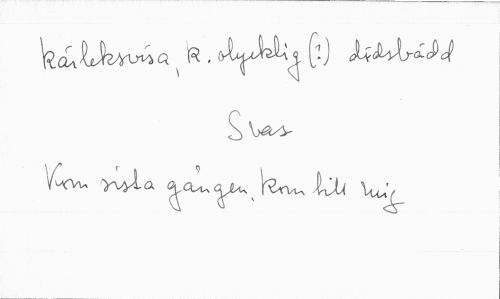 kärleksvisa, k. olycklig (?) dödsbädd
Svas
Kom sista gången, kom till mig